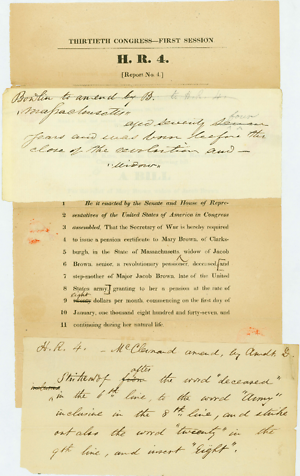 THIRTIETH CONGRESS—FIRST SESSION
H. R. 4.
[Report No. 4]
Bowlin to amend by B.
Massachusetts
aged seventy seven
years and was born before the
close of the revolution and —
widow
1 Be it enacted by the Senate and House of Repre-
2 sentatives of the United States of America in Congress
3 assembled, That the Secretary of War is hereby required
4 to issue a pension certificate to Mary Brown, of Clarks-
5 burgh, in the State of Massachusetts widow of Jacob
6 Brown, senior, a revolutionary pensioner, deceased, [and
7 step-mother of Major Jacob Brown, late of the United
8 States army] granting to her a pension at the rate of
eight
9 dollars per month, commencing on the first day of
10 January, one thousand eight hundred and forty-seven, and
11 continuing during her natural life.
H. R. 4. — McClernand amend, by
after
Strike out from the word "deceased"
in the 6th line, to the word "Army"
inclusive in the 8th line, and strike
out also the word "twenty" in the
9th line, and insert "Eight".